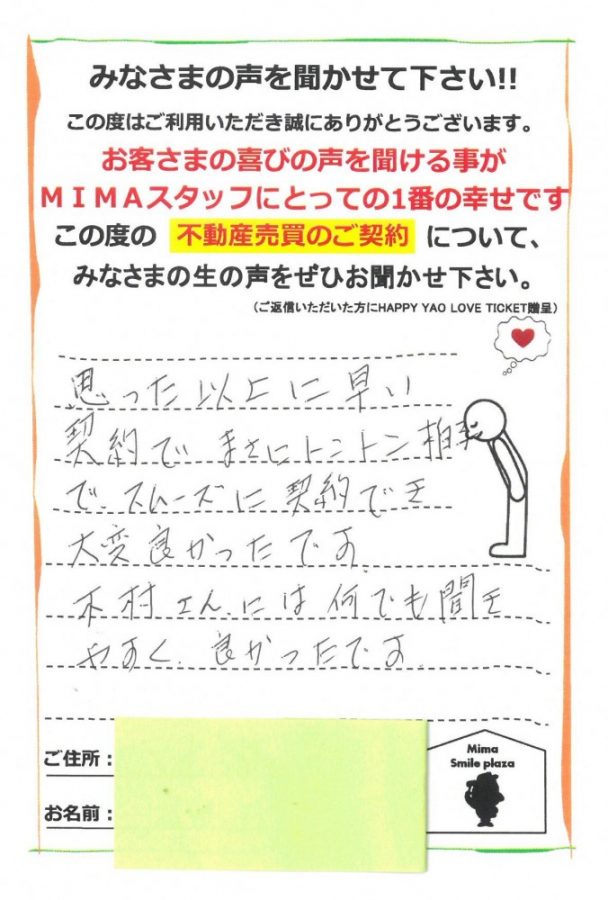 みなさまの声を聞かせて下さい!!
この度はご利用いただき誠にありがとうございます。
お客さまの喜びの声を聞ける事が
MIMAスタッフにとっての1番の幸せです
この度の 不動産売買のご契約 について、
みなさまの生の声をぜひお聞かせ下さい。
(ご返信いただいた方にHAPPY YAO LOVE TICKET贈呈)
思った以上に早い
契約で まさにトントン拍子
で、スムーズに契約でき
大変良かったです。
木村さん、には何でも聞き
やすく、良かったです。
ご住所：
お名前：
Mima
Smile plaza